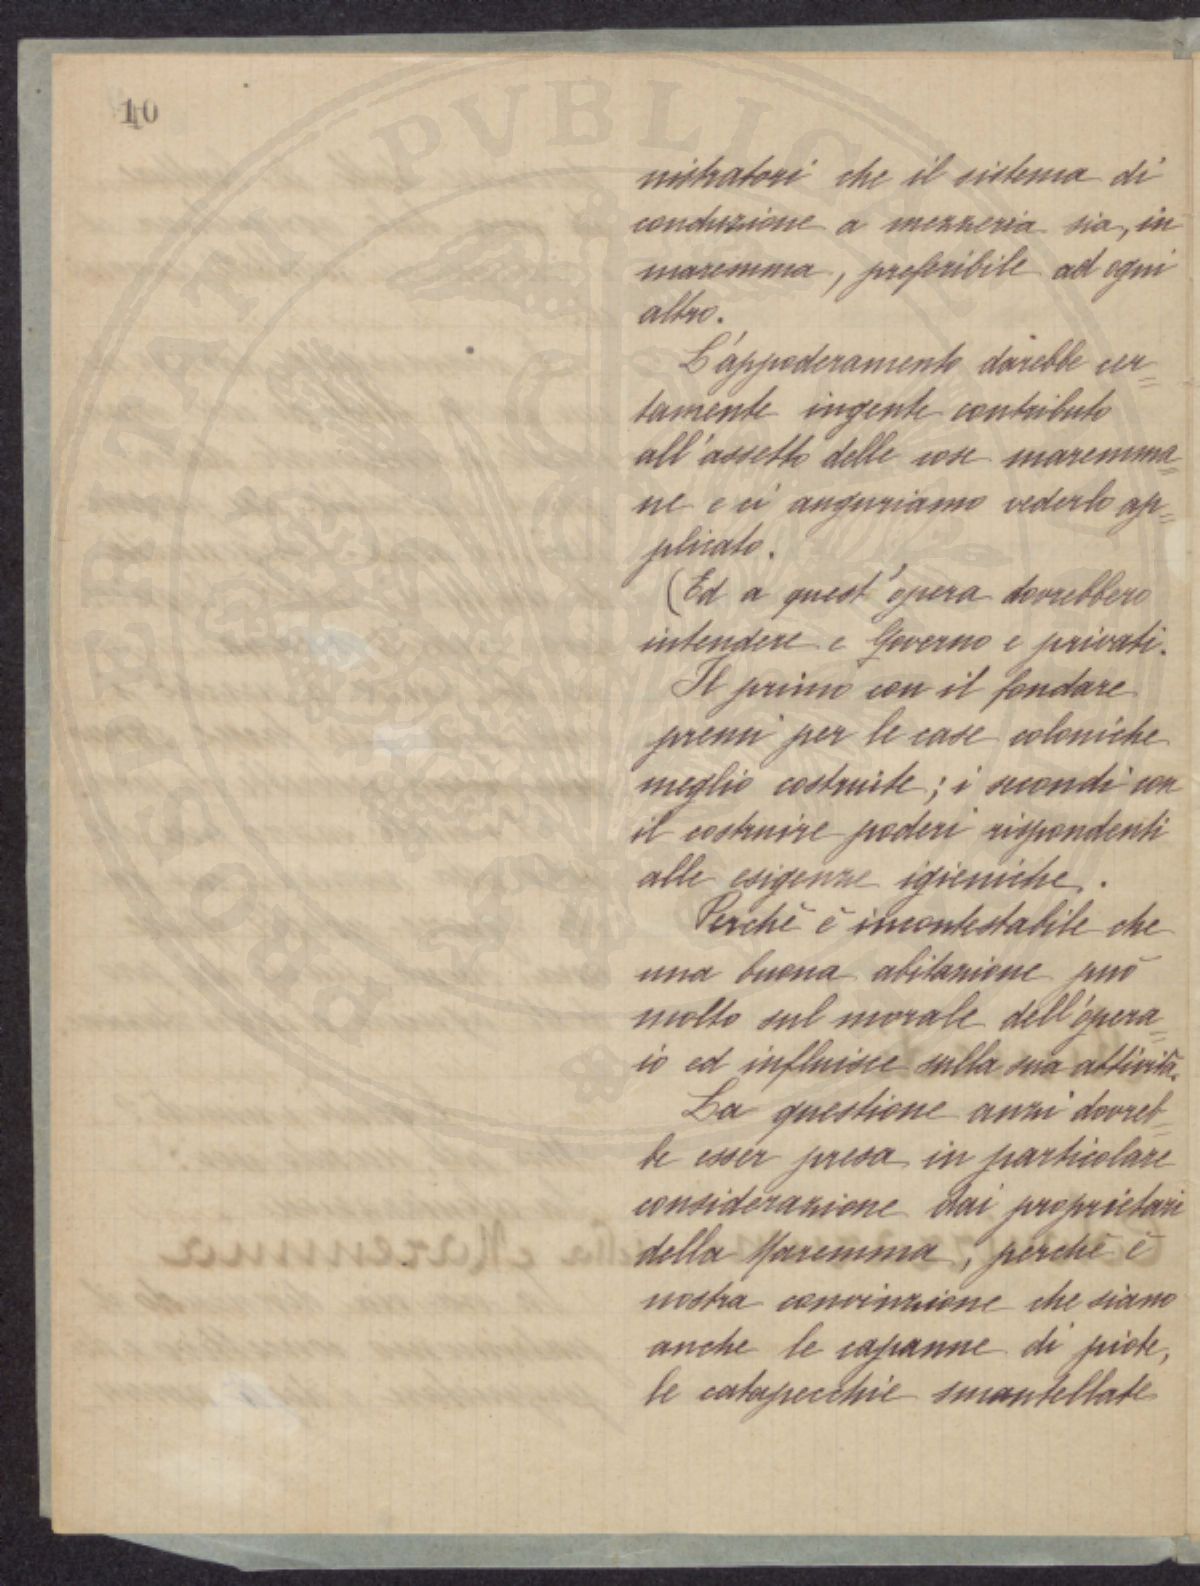 10
nistratori che il sistema di
conduzione a mezzeria sia, in
maremma, preferibile ad ogni
altro.
L'appoderamento darebbe cer=
tamente ingente contributo
all'assetto delle cose maremma=
ne e ci auguriamo vederlo ap=
plicato.
(Ed a quest'opera dovrebbero
intendere e Governo e privati.
Il primo con il fondare
premi per le case coloniche
meglio costruite; i secondi con
il costruire poderi rispondenti
alle esigenze igieniche.
Perchè è incontestabile che
una buona abitazione può
molto sul morale dell'opera=
io ed influisce sulla sua attività.
La questione anzi dovreb=
be esser presa in particolare
considerazione dai proprietari
della Maremma; perchè è
nostra convinzione che siano
anche le capanne di piote,
le catapecchie smantellate
PROPRIETATI PVBLICA